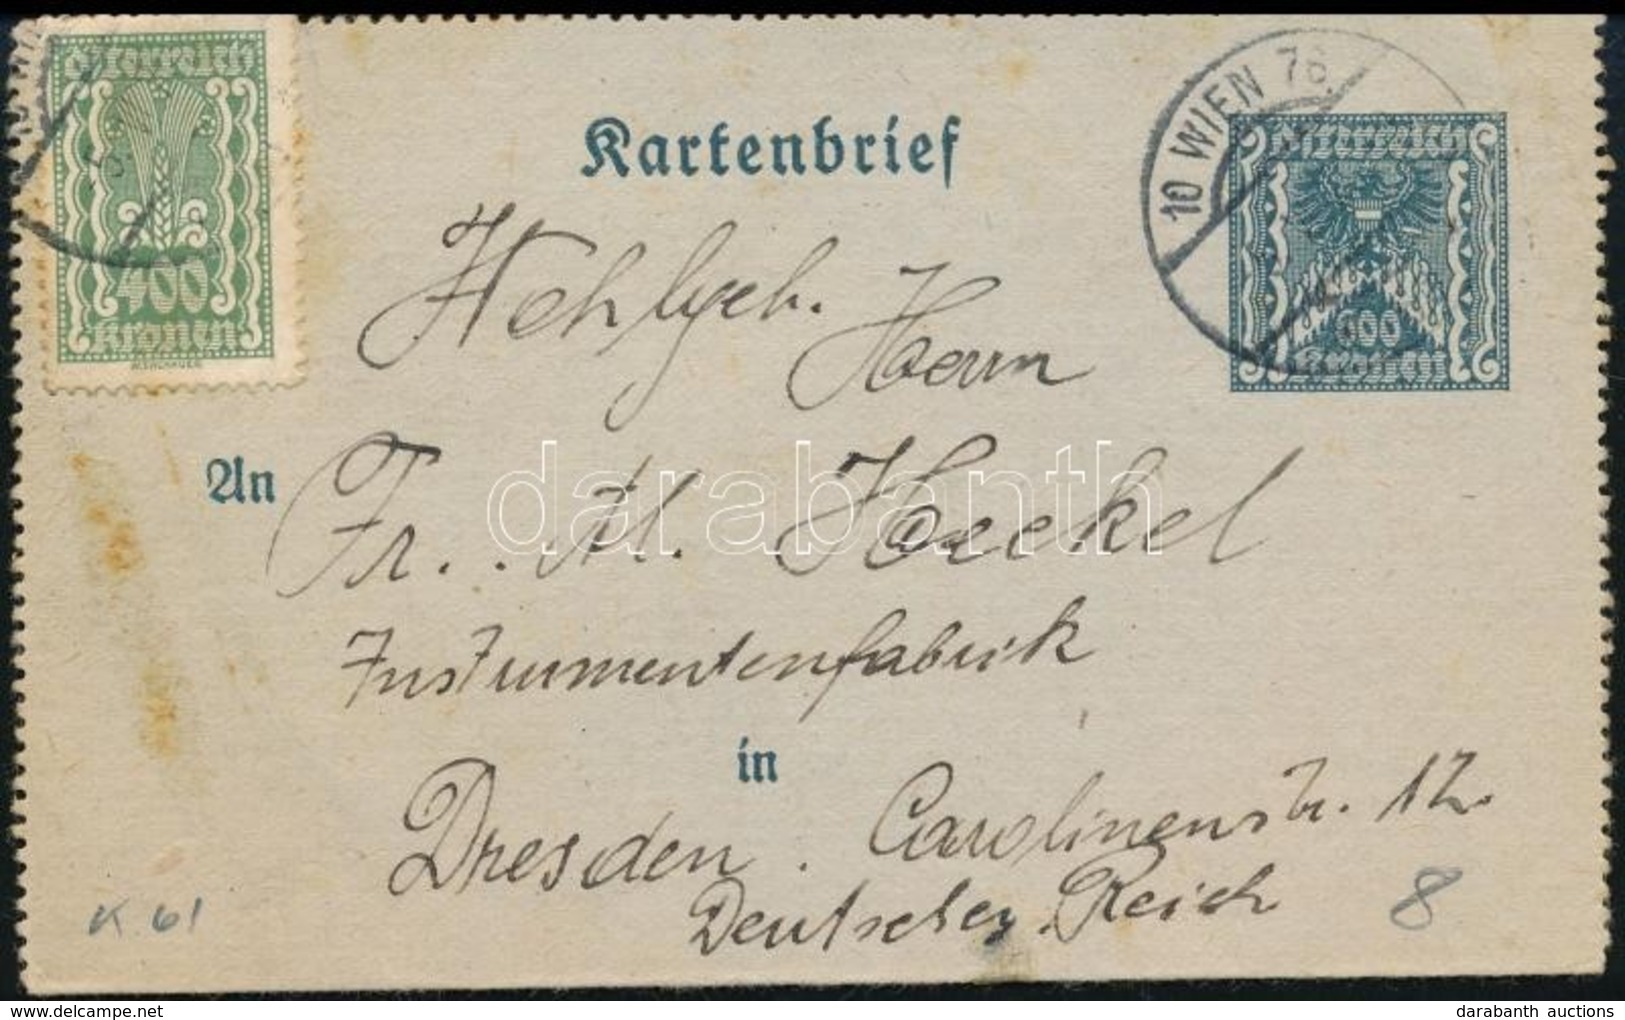 Österreich
400
Kronen
Kartenbrief
10 WIEN 76
Österreich
600
Kronen
Wohlgeb.
Herrn
An
Fr. M. Heckel
Instrumentenfabrik
in
Dresden. Carolinenstr. 12
Deutsches Reich
K 61
8
darabanth
darabanth auctions